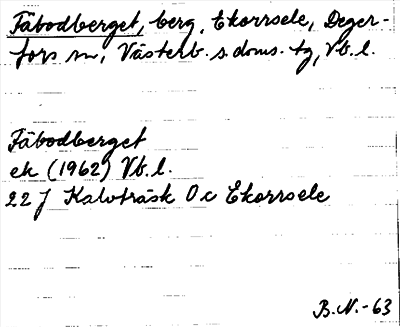 Fäbodberget, berg, Ekorrsele, Deger-
fors sn, Västerb. s. doms. tg, Vb. l.
Fäbodberget
ek (1962) Vb. l.
22 J Kalvträsk 0c Ekorrsele
B.N.-63